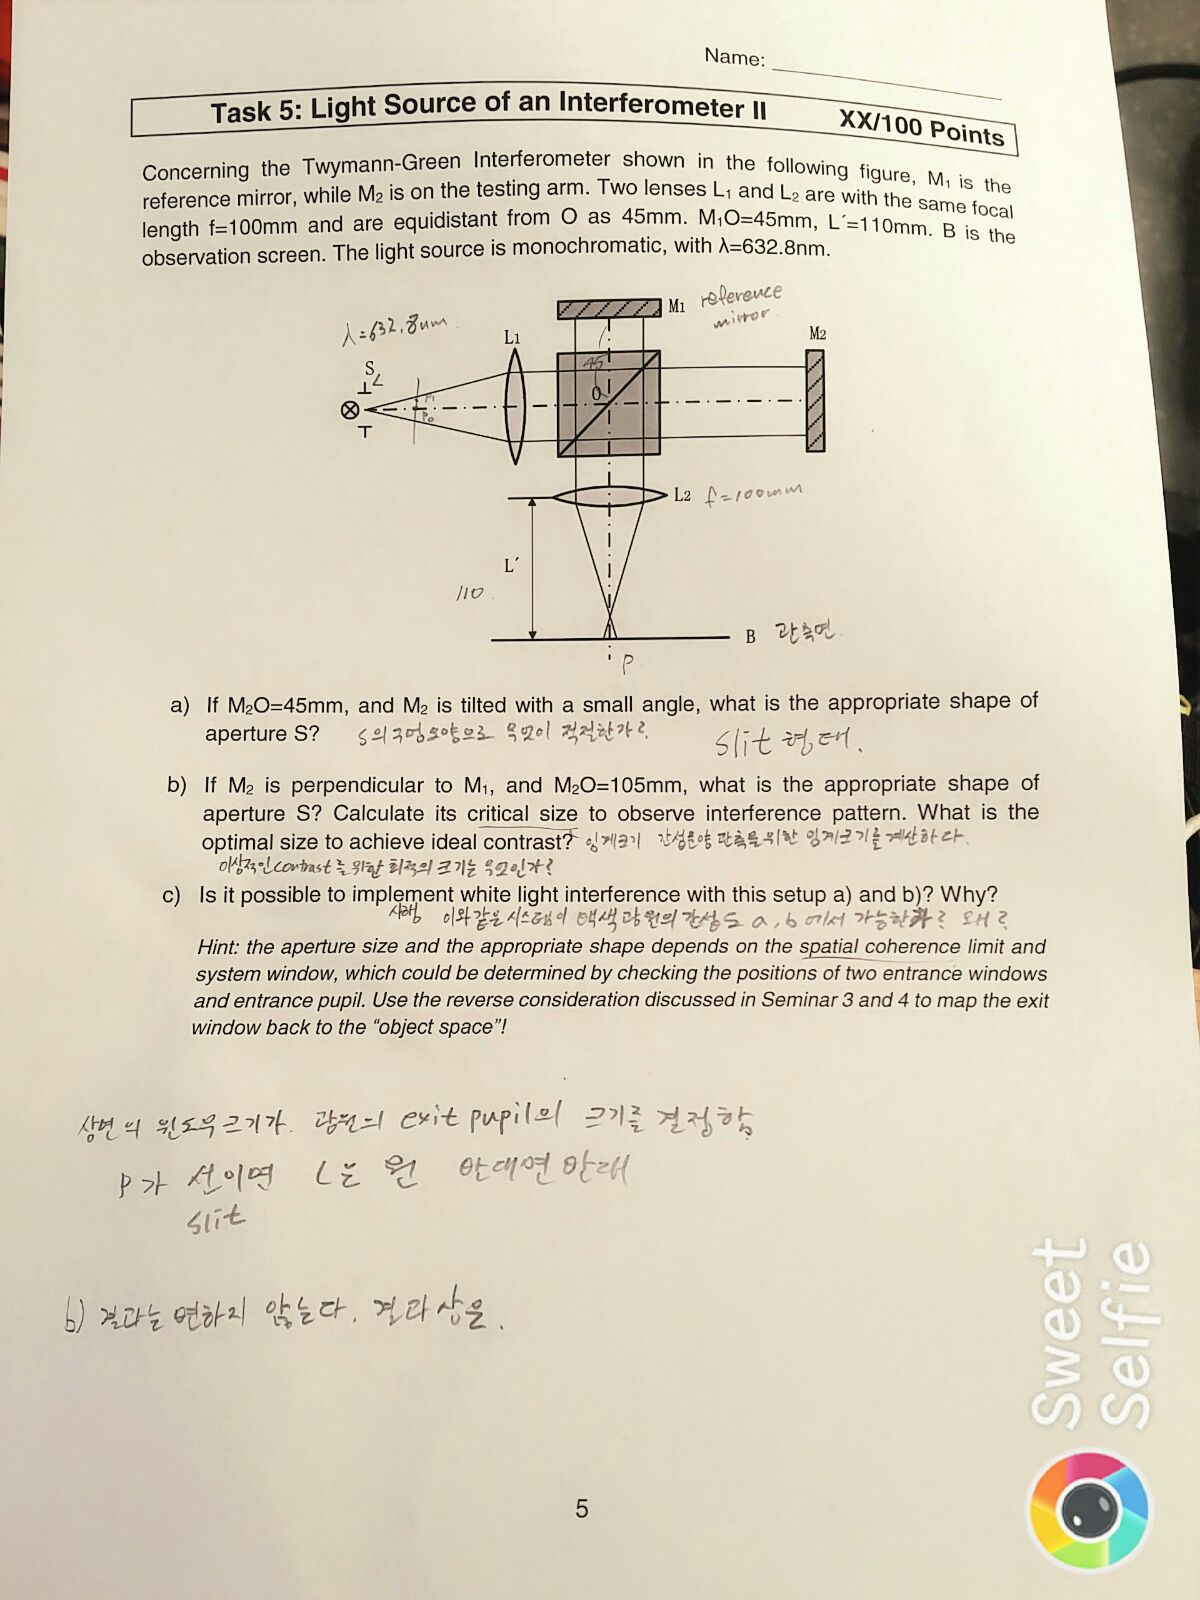 Name:
Task 5: Light Source of an Interferometer II XX/100 Points
Concerning the Twymann-Green Interferometer shown in the following figure, M₁ is the
reference mirror, while M₂ is on the testing arm. Two lenses L₁ and L₂ are with the same focal
length f=100mm and are equidistant from O as 45mm. M₁O=45mm, L´=110mm. B is the
observation screen. The light source is monochromatic, with λ=632.8nm.
M1 reference
mirror
λ=632.8nm
L1
M2
S
45
O
P₁
P₀
T
L2 f=100mm
L´
110
B 관측면
P
a) If M₂O=45mm, and M₂ is tilted with a small angle, what is the appropriate shape of
aperture S? S의 구멍모양으로 무엇이 적절한가?
slit 형태.
b) If M₂ is perpendicular to M₁, and M₂O=105mm, what is the appropriate shape of
aperture S? Calculate its critical size to observe interference pattern. What is the
optimal size to achieve ideal contrast? 임계크기 간섭문양 관측을 위한 임계크기를 계산하다.
이상적인 contrast를 위한 최적의 크기는 무엇인가?
c) Is it possible to implement white light interference with this setup a) and b)? Why?
이와같은 시스템이 백색광원의 간섭도 a, b 에서 가능한가? 왜?
Hint: the aperture size and the appropriate shape depends on the spatial coherence limit and
system window, which could be determined by checking the positions of two entrance windows
and entrance pupil. Use the reverse consideration discussed in Seminar 3 and 4 to map the exit
window back to the “object space”!
상면의 윈도우 크기가 광원의 exit pupil의 크기를 결정함
P가 선이면 L는 원
slit
b) 결과는 변하지 않는다. 결과상은.
5
Sweet
Selfie